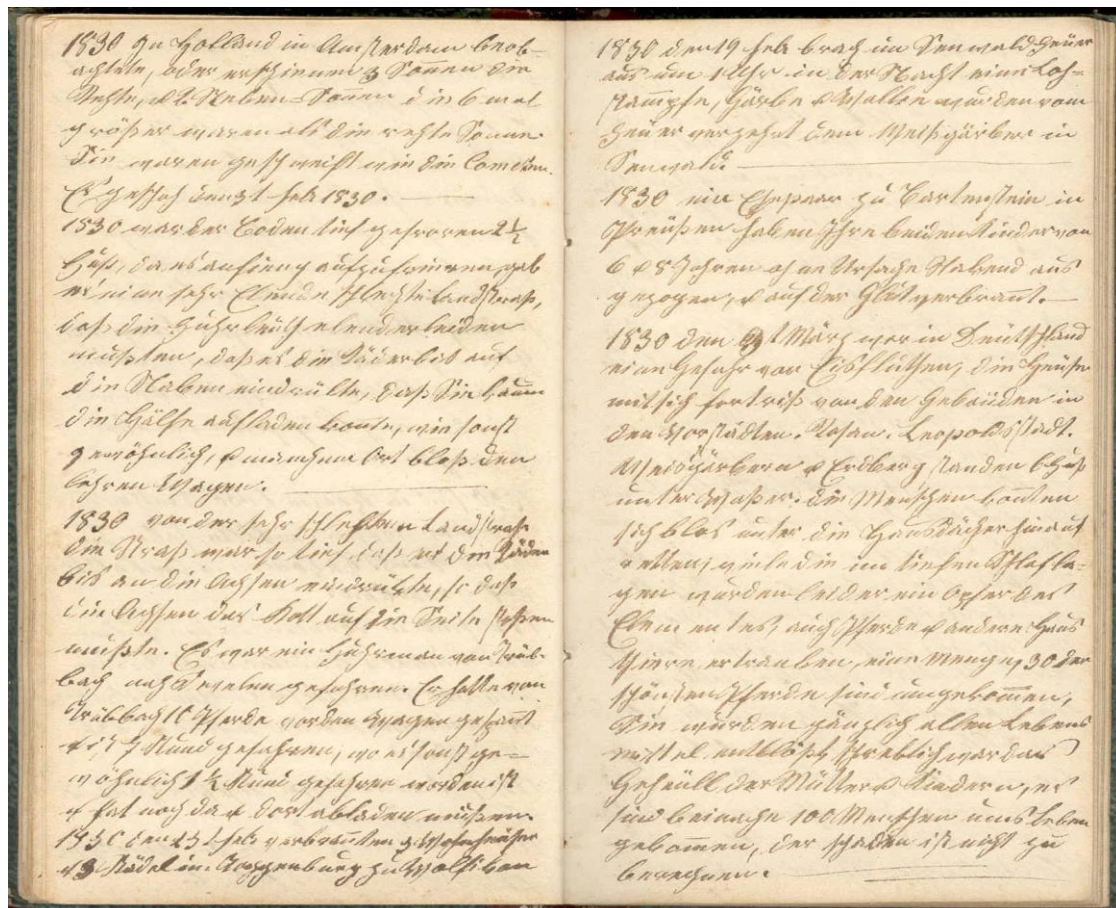 1830 zu Holland in Amsterdam beob-
achtete, oder erschienen 3 Sonen die
Rechte, u 2 Neben-Sonen die 6 mal
größer waren als die rechte Sonne
Sie waren geschweift wie die Cometen.
Es geschah den 31 feb 1830.
1830 war der Boden tief gefroren 2 1/2
Fuß, da es anfieng aufzufrieren, gab
es eine sehr Elende schlechte Landstraß,
daß die Fuhrleüth elender leiden
mußten, daß es die Räder bis auf
die Naben eindrükte, daß Sie kaum
die Hälfte aufladen konte, wie sonst
gewöhnlich, u manchem Ort bloß den
lehren Wagen.
1830 von der sehr schlechten Landstraß
die Straß war so tief, daß es die Räder
bis an die Achsen eindrükte, so daß
die Achsen das Kott auf die Seite stoßen
mußte. Es war ein Fuhrman von Trüb-
bach nach Sevelen gefahren. Er hatte von
Trübbach 16 Pferde vor den Wagen gespant
u ist 7 Stund gefahren, wo er sonst ge-
wöhnlich 1 1/2 Stund gefahren worden ist
u hat noch da u dort abladen müßen.
1830 den 23 t feb verbranten 3 Wohnheüser
u 3 Städel in Toggenburg zu
1830 den 19 feb brach im Senwald Feüer
aus um 1 Uhr in der Nacht eine Loh-
stampfe, Gärbe u Walke wurden vom
Feüer verzehrt dem Weißgärber in
Senwald.
1830 ein Ehepaar zu Bartenstein in
Preüßen haben Ihre beiden Kinder von
6 u 8 Jahren ohne Ursache Nakend aus
gezogen, u auf der Glüt verbrant.
1830 den t März war in Deütschland
eine Gefahr von Eisfluthen, die Heüser
mit sich fortriß von den Gebaüden in
den Vorstädten. Roßau. Leopoldsstadt.
Weisgärbern u Erdberg standen 6 Fuß
unter Waßer. die Menschen konten
sich blos unter die Hausdächer hinauf
retten, viele die im tiefen Schlaf la-
gen wurden leider ein Opfer des
Elementes, auch Pferde u andere Haus
thiere ertranken, eine Menge, 30 der
schönsten Pferde sind umgekomen,
Sie wurden gänzlich allen Lebens
mittel entblößt, schreklich war das
Geheüll der Mütter u Kindern, es
sind beinache 100 Menschen ums Leben
gekommen, der schaden ist nicht zu
berechnen.